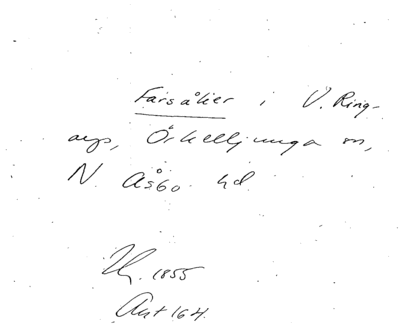 Farsåker i V. Ring-
arp, Örkelljunga sn,
N Åsbo hd
1855
Akt 164.